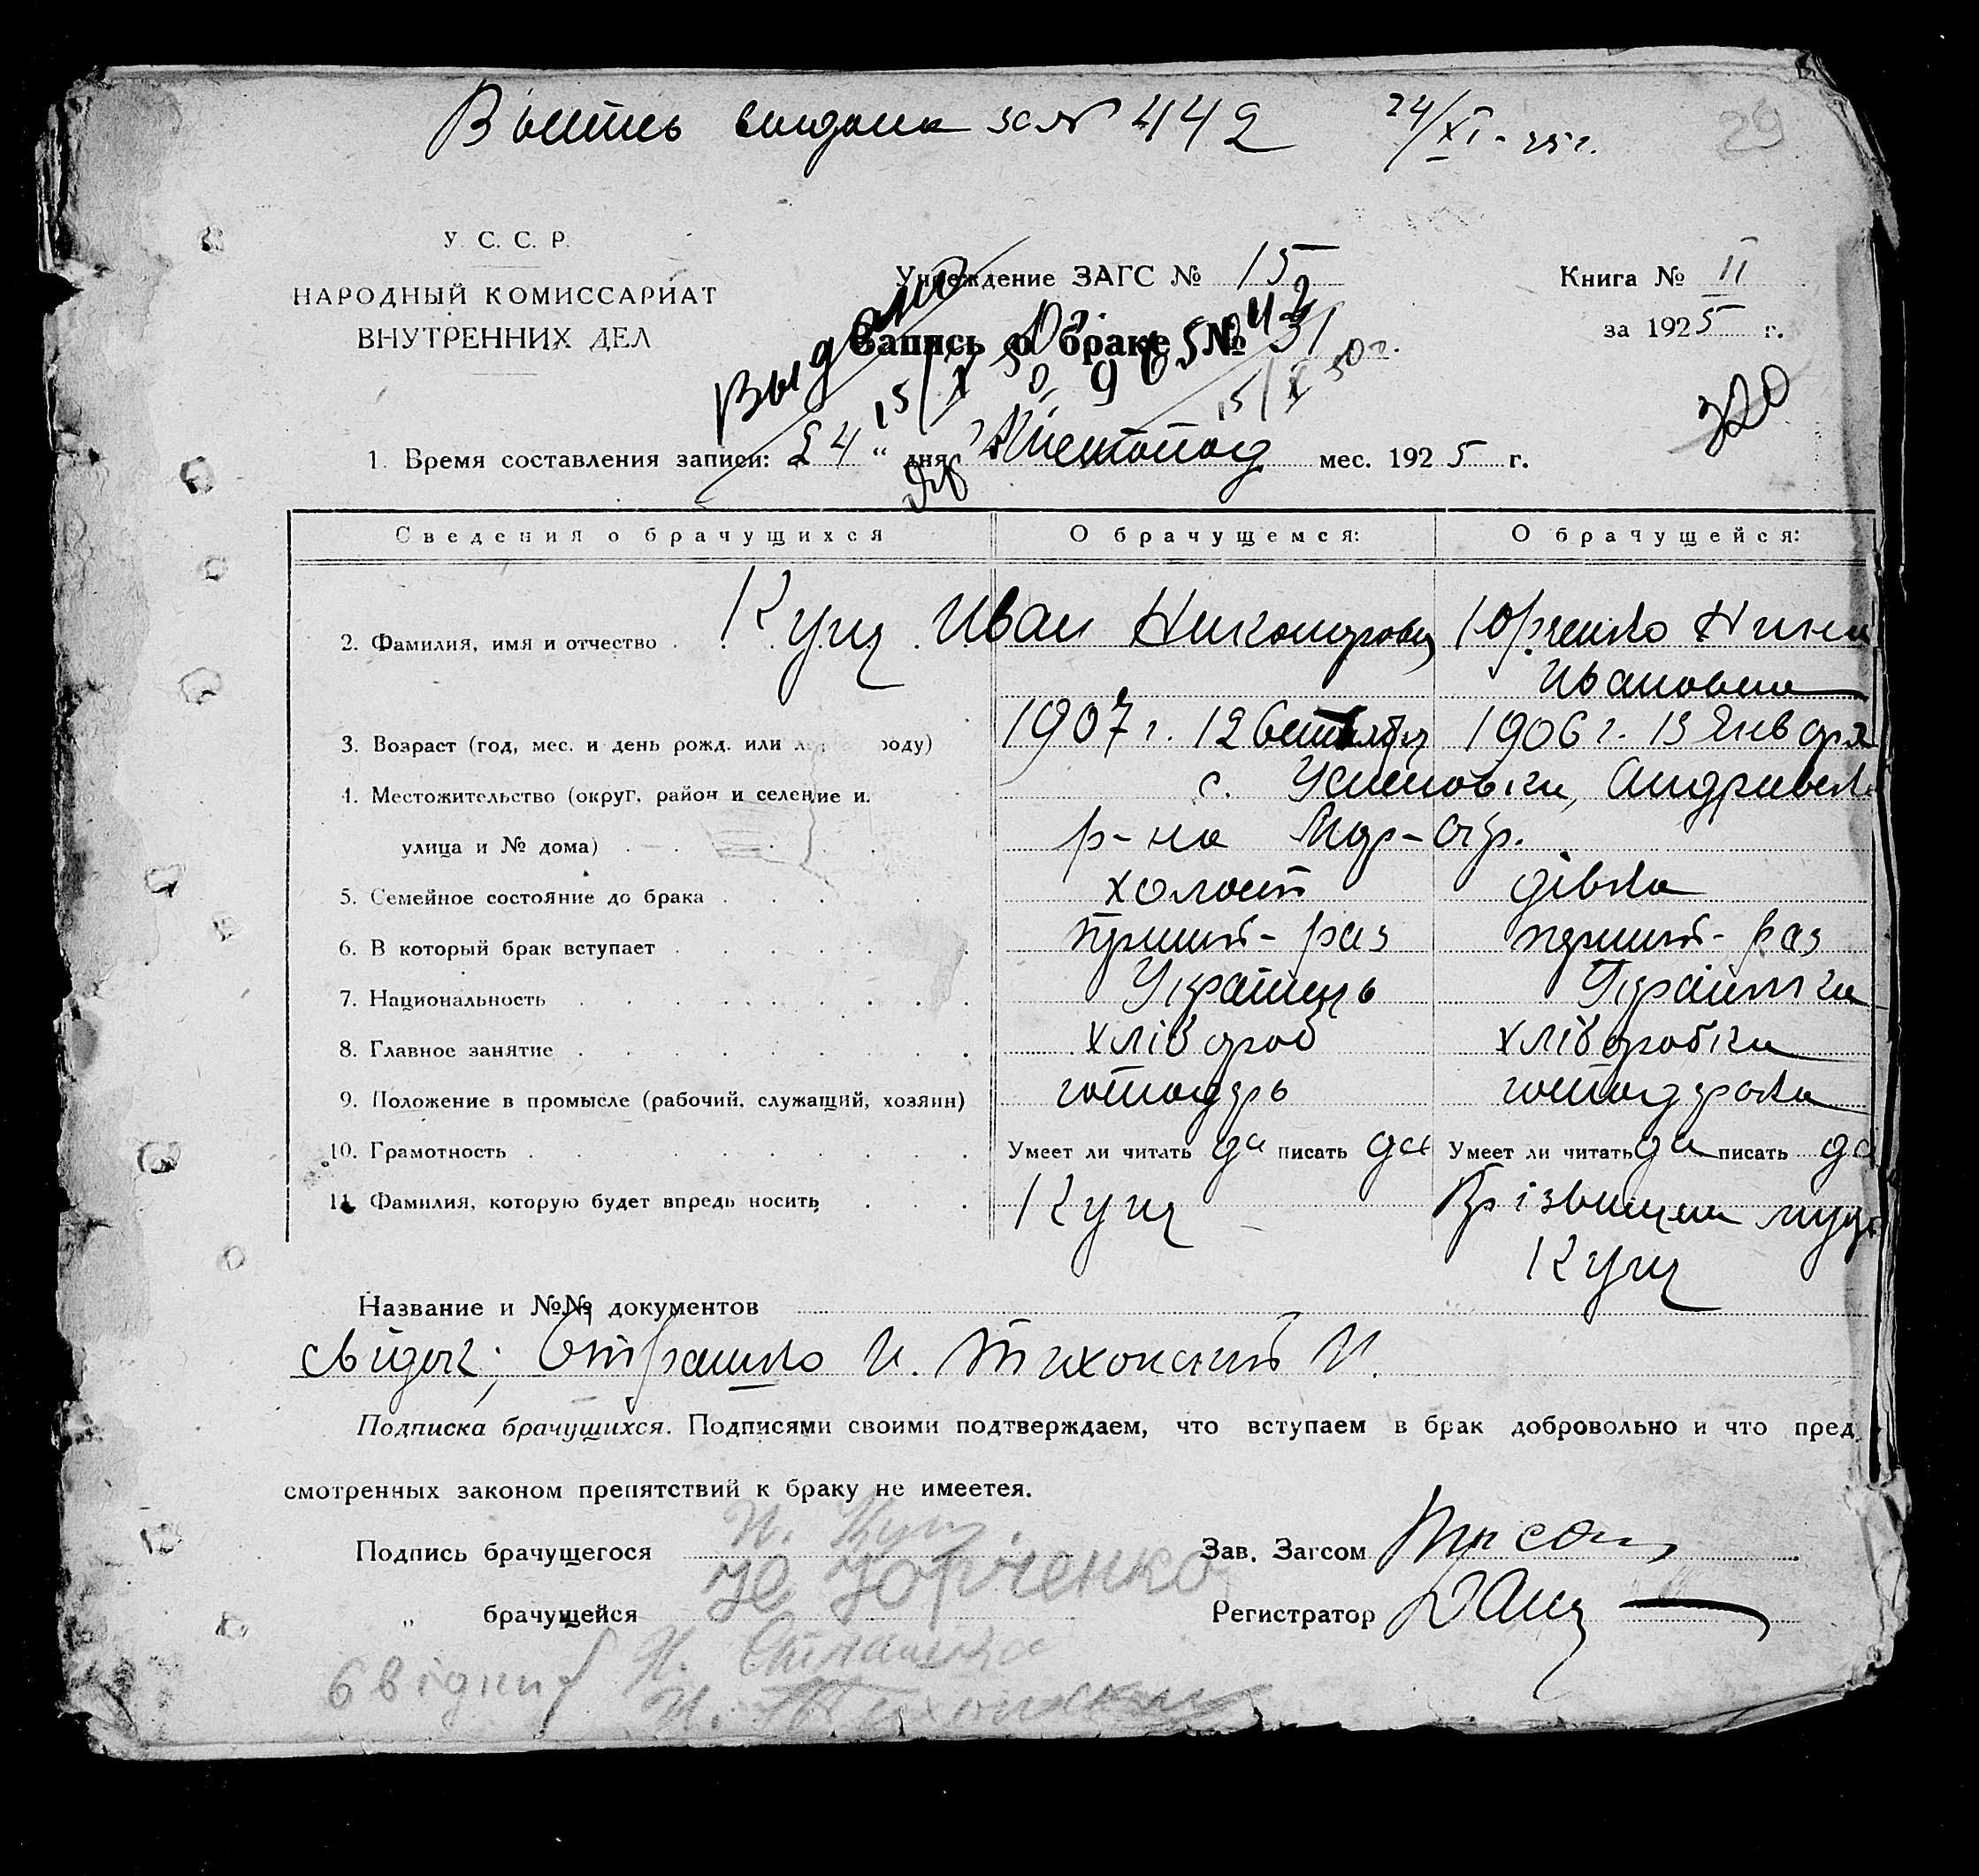 Выпись выдана за № 442 24/XI-25г.
29
У. С. С. Р.
НАРОДНЫЙ КОМИССАРИАТ
ВНУТРЕННИХ ДЕЛ
Учреждение ЗАГС № 15
Книга № II
Запись о браке № 31
за 1925 г.
15/X 50г.
320
1. Время составления записи: 24 " дня Листопад мес. 1925 г.
Сведения о брачущихся О брачущемся: О брачущейся:
2. Фамилия, имя и отчество Кущ Иван Никонорович Юрченко Нина
Ивановна
3. Возраст (год, мес. и день рожд. или роду) 1907 г. 12 1906 г. 13 Января
4. Местожительство (округ, район и селение и с. Успеновки,
улица и № дома) р-на Мар-окр.
5. Семейное состояние до брака холост дівка
6. В который брак вступает перший-раз перший-раз
7. Национальность Українець Українка
8. Главное занятие хлібороб хліборобка
9. Положение в промысле (рабочий, служащий, хозяин) господарь господарка
10. Грамотность Умеет ли читать да писать да Умеет ли читать да писать да
11. Фамилия, которую будет впредь носить Кущ Прізвище мужа
Кущ
Название и №№ документов
свідки; Страшко И. Тихонский И.
Подписка брачущихся. Подписями своими подтверждаем, что вступаем в брак добровольно и что пред
смотренных законом препятствий к браку не имеетея.
Подпись брачущегося И. Кущ. Зав. Загсом
" брачущейся Юрченко Регистратор
Свідки Н. Страшко
И. Тихонский